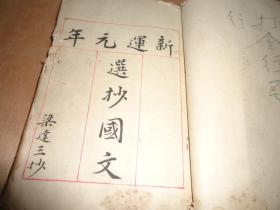 新運元年
選抄國文
梁達三抄